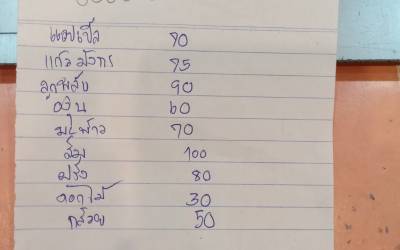 แอปเปิ้ล 80
แก้วมังกร 85
ลูกพลับ 90
องุ่น 60
มะพร้าว 70
ส้ม 100
ฝรั่ง 80
ดอกไม้ 30
กล้วย 50